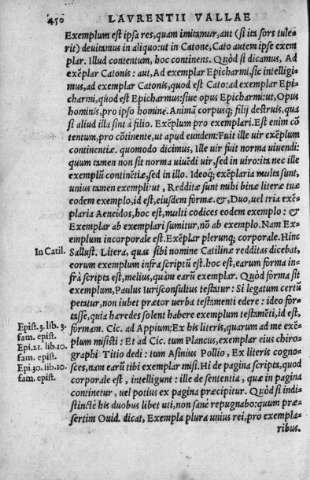 450 LAVRENTII VALLAE
Exemplum est ipsa res, quam imitamur, aut (si ita sors tule-
rit) deuitamus in aliquo: ut in Catone, Cato autem ipse exem
plar. Illud contentum, hoc continens. Quòd si dicamus, Ad
exẽplar Catonis: aut, Ad exemplar Epicharmi, sic intelligi-
mus, ad exemplar Catonis, quod est Cato: ad exemplar Epi-
charmi, quod est Epicharmus: siue opus Epicharmi: ut, Opus
hominis, pro ipso homine. Anima corpusq; filij destruis, qua
si aliud illa sint à filio. Exẽplum pro exemplari. Est enim cõ
tentum, pro cõtinente, ut apud eundem: Fuit ille uir exẽplum
continentiæ. quomodo dicimus, Ille uir fuit norma uiuendi:
quum tamen non sit norma uiuẽdi uir, sed in uiro: ita nec ille
exemplũ continẽtiæ, sed in illo. Ideoq; exẽplaria multa sunt,
unius tamen exempli: ut, Redditæ sunt mihi binæ literæ tuæ
eodem exemplo, id est, eiusdem formæ. &, Duo, uel tria exẽ-
plaria Aeneidos, hoc est, multi codices eodem exemplo: &
Exemplar ab exemplari sumitur, nõ ab exemplo. Nam Ex-
emplum incorporale est. Exẽplar plerunq; corporale. Hinc
In Catil. Sallust. Literæ, quas sibi nomine Catilinæ redditas dicebat,
earum exemplum infra scriptũ est. hoc est, earum forma in-
frà scripta est, melius, quàm earũ exemplar. Quòd forma sit
exemplum, Paulus iurisconsultus testatur: Si legatum certũ
petatur, non iubet prætor uerba testamenti edere: ideo for-
tasse, quia haredes solent habere exemplum testamẽti, id est,
Epist. 3. lib. 3. formam. Cic. ad Appium: Ex his literis, quarum ad me exẽ-
fam. epist. plum misisti: Et ad Cic. tum Plancus, exemplar eius chiro-
Epi. 21. lib. 10. graphi Titio dedi: tum Asinius Pollio, Ex literis cognos-
fam. epist.
Epi. 30. lib. 10. ces, nam earũ tibi exemplar misi. Hi de pagina scripta, quod
fam. epist. corporale est, intelligunt: ille de sententia, quæ in pagina
continetur, uel potius ex pagina præcipitur. Quòd si indi-
stinctè his duobus libet uti, non sanè repugnabo: quum præ-
sertim Ouid. dicat, Exempla plura unius rei, pro exempla-
ribus.